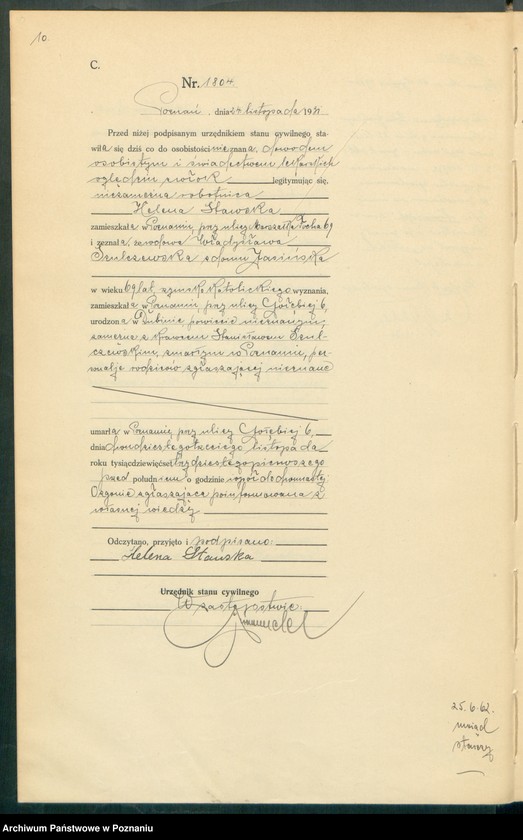 10
C.
Nr. 1804
Poznań, dnia 24 listopada 1931
Przed niżej podpisanym urzędnikiem stanu cywilnego sta-
wiła się dziś co do osobistości nieznana, dowodem
osobistym i świadectwem lekarskich
względem zwłok legitymując się,
niezamężna robotnica
Helena Stawska
zamieszkała w Poznaniu, przy ulicy Marszałka Focha 69
i zeznała, że wdowa Władysława
Szulczewska z domu Jasińska
w wieku 69 lat, rzymsko katolickiego wyznania,
zamieszkała w Poznaniu, przy ulicy Gołębiej 6,
urodzona w Dubinie, powiecie
zamężna z krawcem Stanisławem Szul-
czewskim, zmarłym w Poznaniu, per-
sonalje rodziców zgłaszającej nieznane
umarła w Poznaniu, przy ulicy Gołębiej 6,
dnia dwudziestego trzeciego listopada
roku tysiąc dziewięćset trzydziestego pierwszego
przed południem o godzinie wpół do dwunastej.
O zgonie zgłaszająca poinformowana z
własnej wiedzy.
Odczytano, przyjęto i podpisano:
Helena Stawska
Urzędnik stanu cywilnego
W zastępstwie:
25.6.62.
starszy
Archiwum Państwowe w Poznaniu